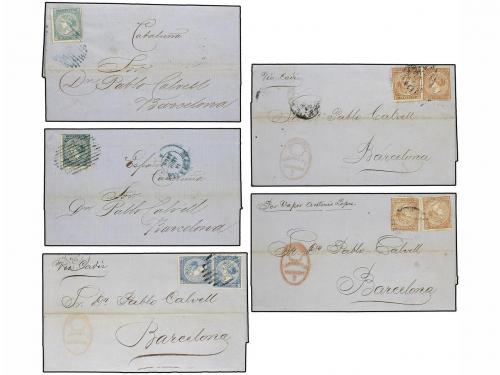 Cataluña
Sor.
Dn. Pablo Calvell
Barcelona
España
Sor.
Dn Pablo Calvell
Barcelona
Via Cadiz
Sr. Dn. Pablo Calvell
Barcelona
Via Cadiz
Sr. Dn. Pablo Calvell
Barcelona
Por Vapor Antonio Lopez
Sr. Dn. Pablo Calvell
Barcelona